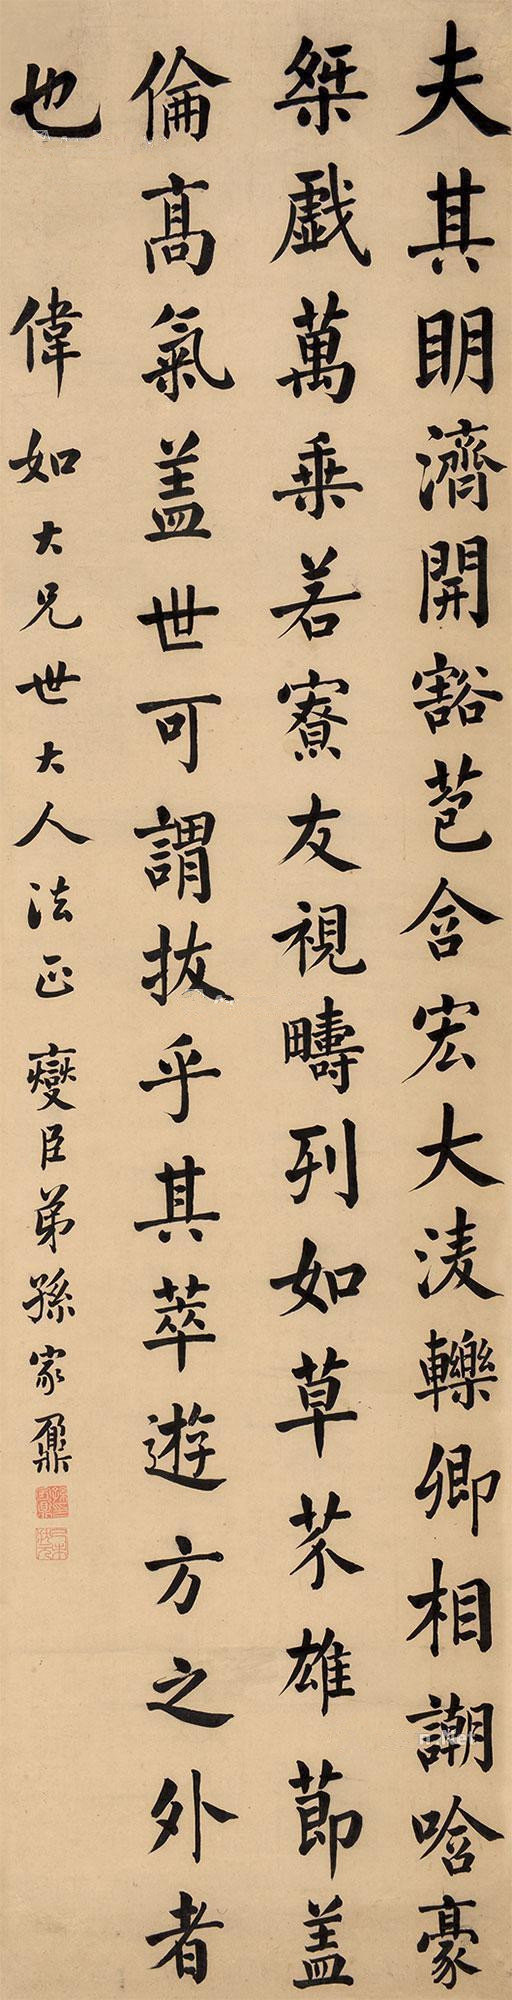 夫其明濟開豁苞含宏大淩轢卿相謿哈豪
桀戲萬乗若寮友視疇列如草芥雄節盖
倫髙氣盖世可謂拔乎其萃遊方之外者
也 偉如大兄世大人法正 燮臣弟孫家鼐